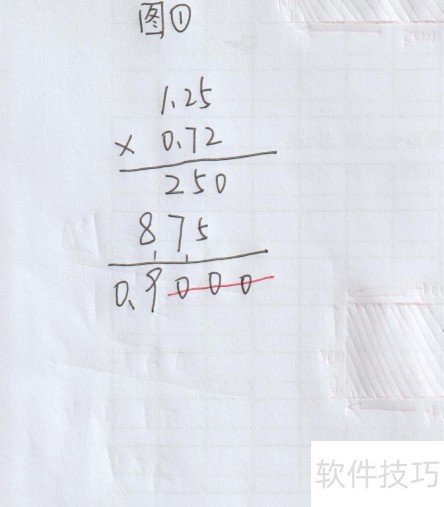 图①
1.25
× 0.72
250
875
0.9000
软件技巧